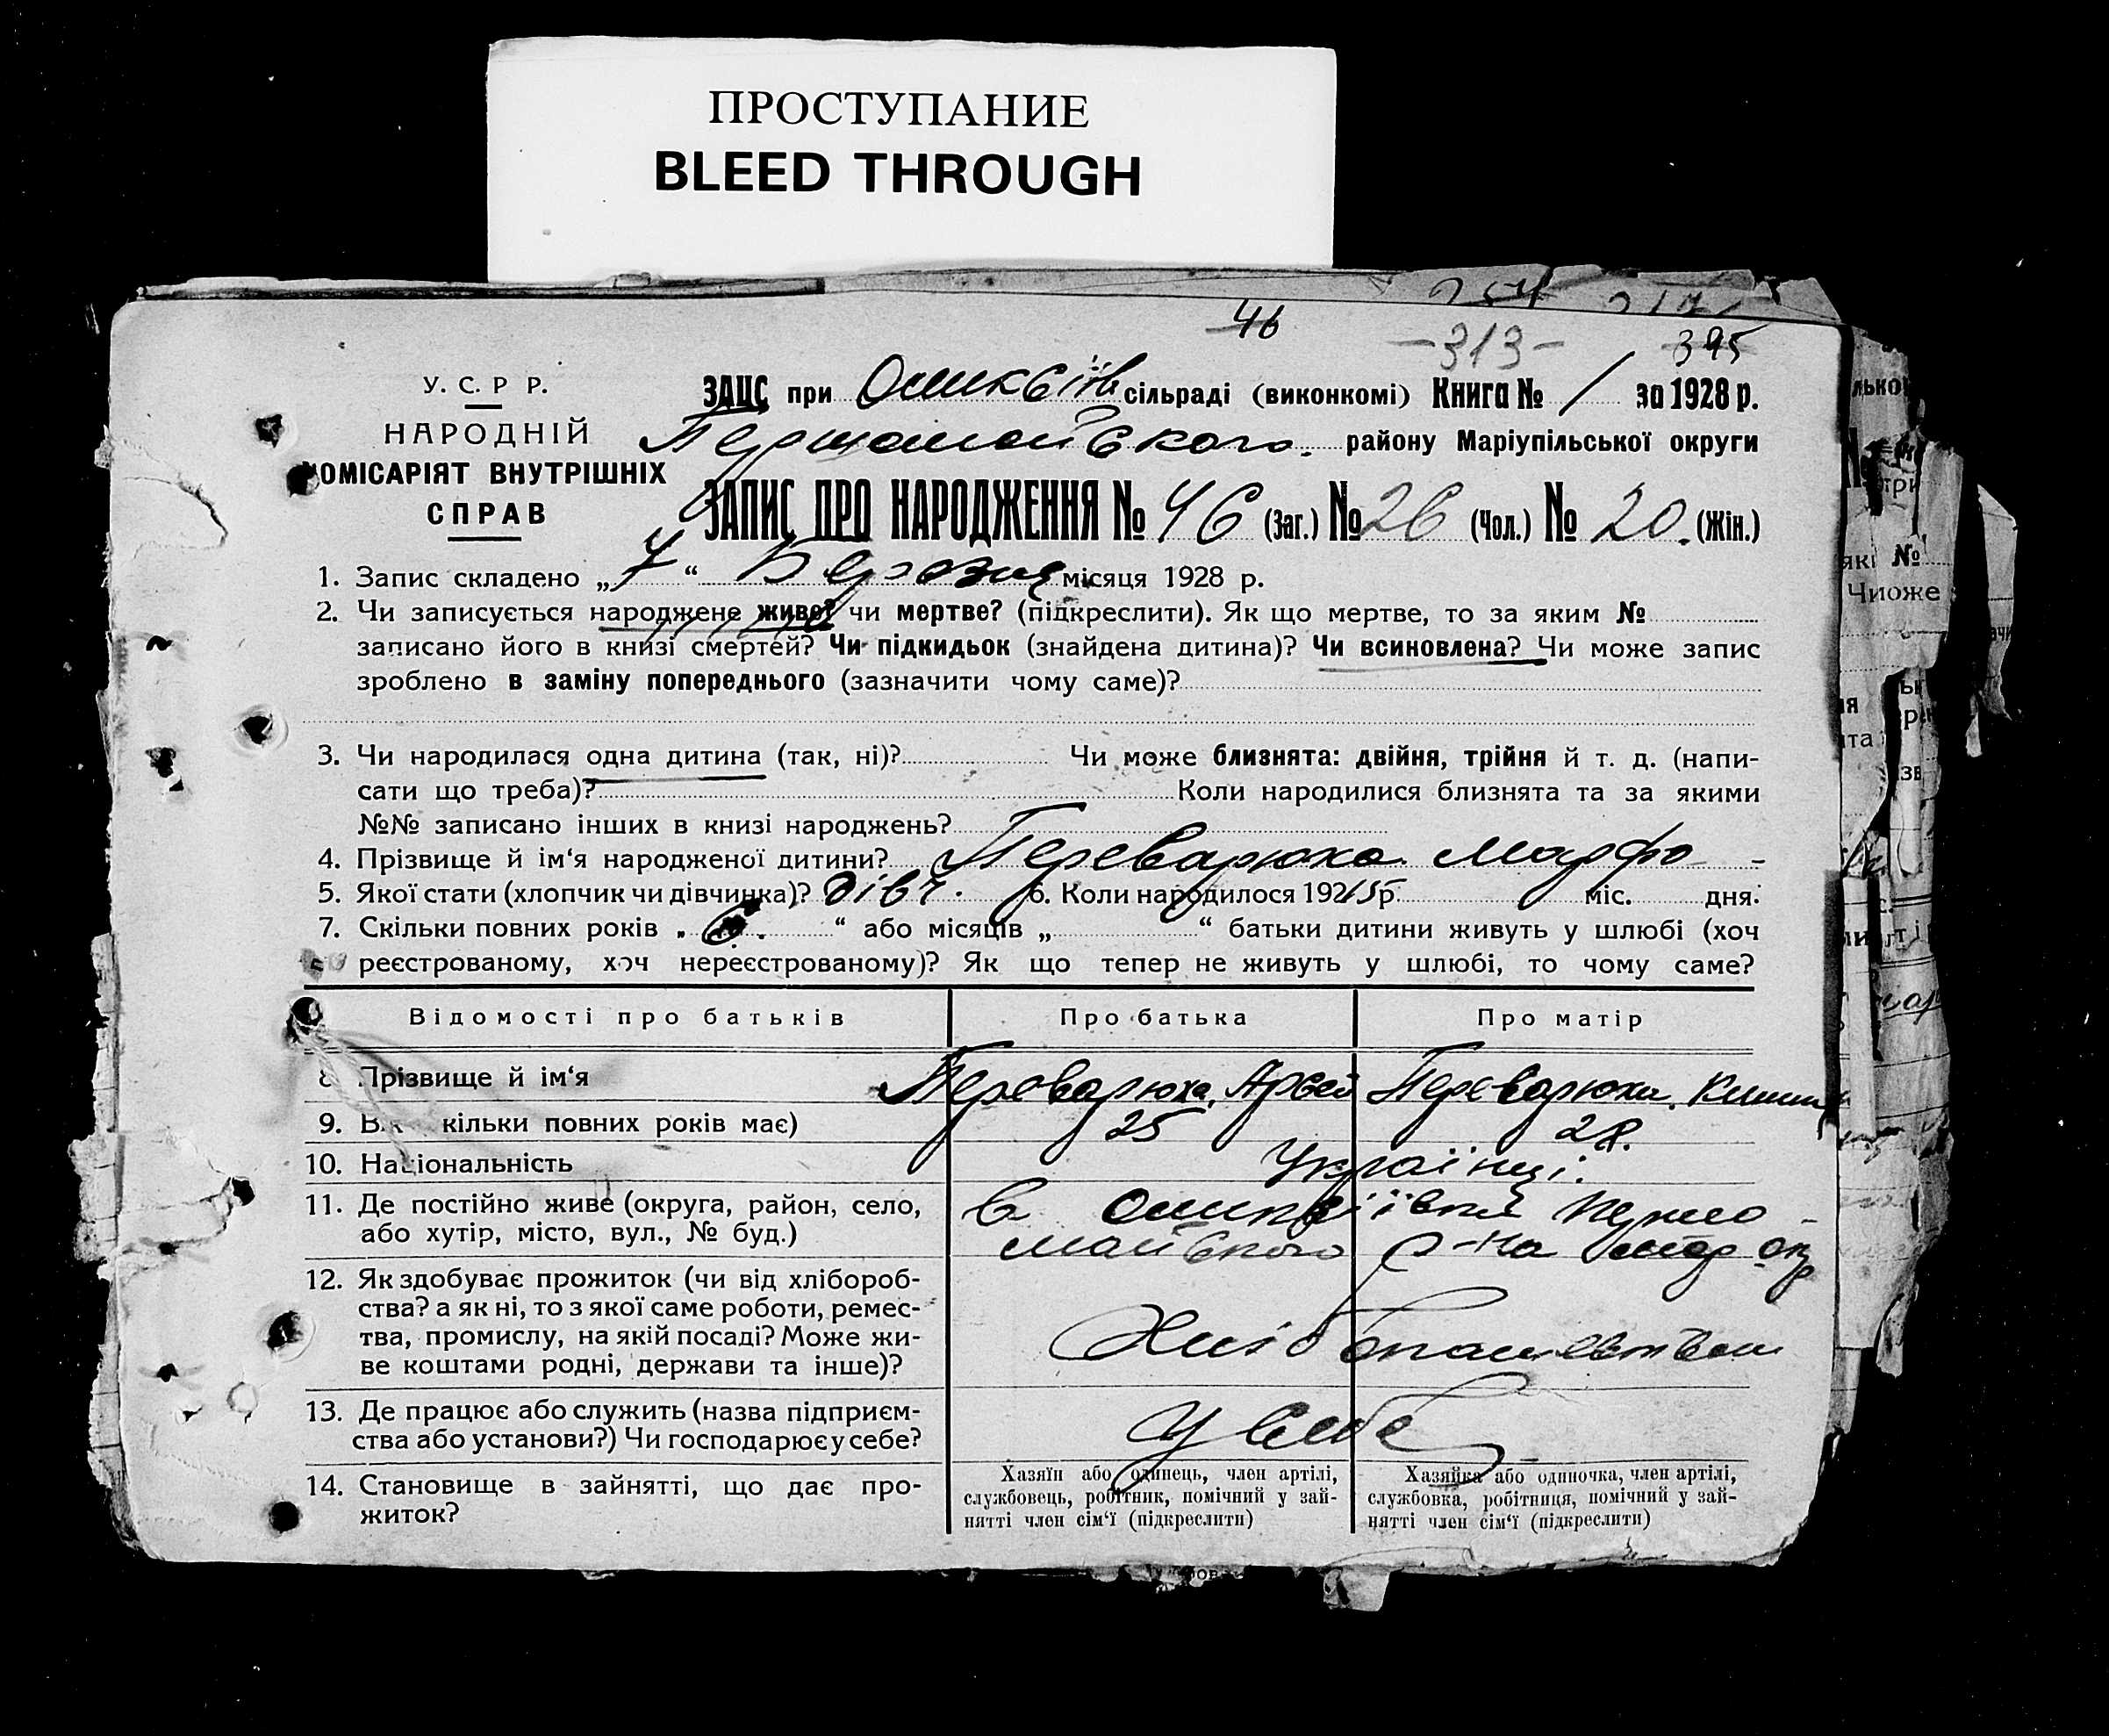 ПРОСТУПАНИЕ
BLEED THROUGH
46
-313- 395
У. С. Р Р.
НАРОДНІЙ
КОМІСАРІЯТ ВНУТРІШНІХ
СПРАВ
ЗАЦС при сільраді (виконкомі) Книга № 1 за 1928 р.
Першамайського району Маріупільської округи
ЗАПИС ПРО НАРОДЖЕННЯ № 46 (Заг.) № 26 (Чол.) № 20. (Жін.)
1. Запис складено „7“ Березня місяця 1928 р.
2. Чи записується народжене живе? чи мертве? (підкреслити). Як що мертве, то за яким №
записано його в книзі смертей? Чи підкидьок (знайдена дитина)? Чи всиновлена? Чи може запис
зроблено в заміну попереднього (зазначити чому саме)?
3. Чи народилася одна дитина (так, ні)? Чи може близнята: двійня, трійня й т. д. (напи-
сати що треба)? Коли народилися близнята та за якими
№№ записано інших в книзі народжень?
4. Прізвище й ім‘я народженої дитини? Переварюха Марфа
5. Якої стати (хлопчик чи дівчинка)? дівч. 6. Коли народилося 192 р. міс. дня.
7. Скільки повних років „ 6. “ або місяців „ “ батьки дитини живуть у шлюбі (хоч
реєстрованому, хоч нереєстрованому)? Як що тепер не живуть у шлюбі, то чому саме?
Відомості про батьків Про батька Про матір
8 Прізвище й ім‘я Переварюха, Переварюха,
9. кільки повних років має) 25 28.
10. Національність Українці.
11. Де постійно живе (округа, район, село,
або хутір, місто, вул., № буд.)
в Першо-
майського р-на Мар окр
12. Як здобуває прожиток (чи від хлібороб-
ства? а як ні, то з якої саме роботи, ремес-
тва, промислу, на якій посаді? Може жи-
ве коштами родні, держави та інше)?
13. Де працює або служить (назва підприєм-
ства або установи?) Чи господарює у себе?
У себе
14. Становище в зайнятті, що дає про-
житок?
Хазяїн або одинець, член артілі,
службовець, робітник, помічний у зай-
нятті член сім‘ї (підкреслити)
Хазяйка або одиночка, член артілі,
службовка, робітниця, помічний у зай-
нятті член сім‘ї (підкреслити)